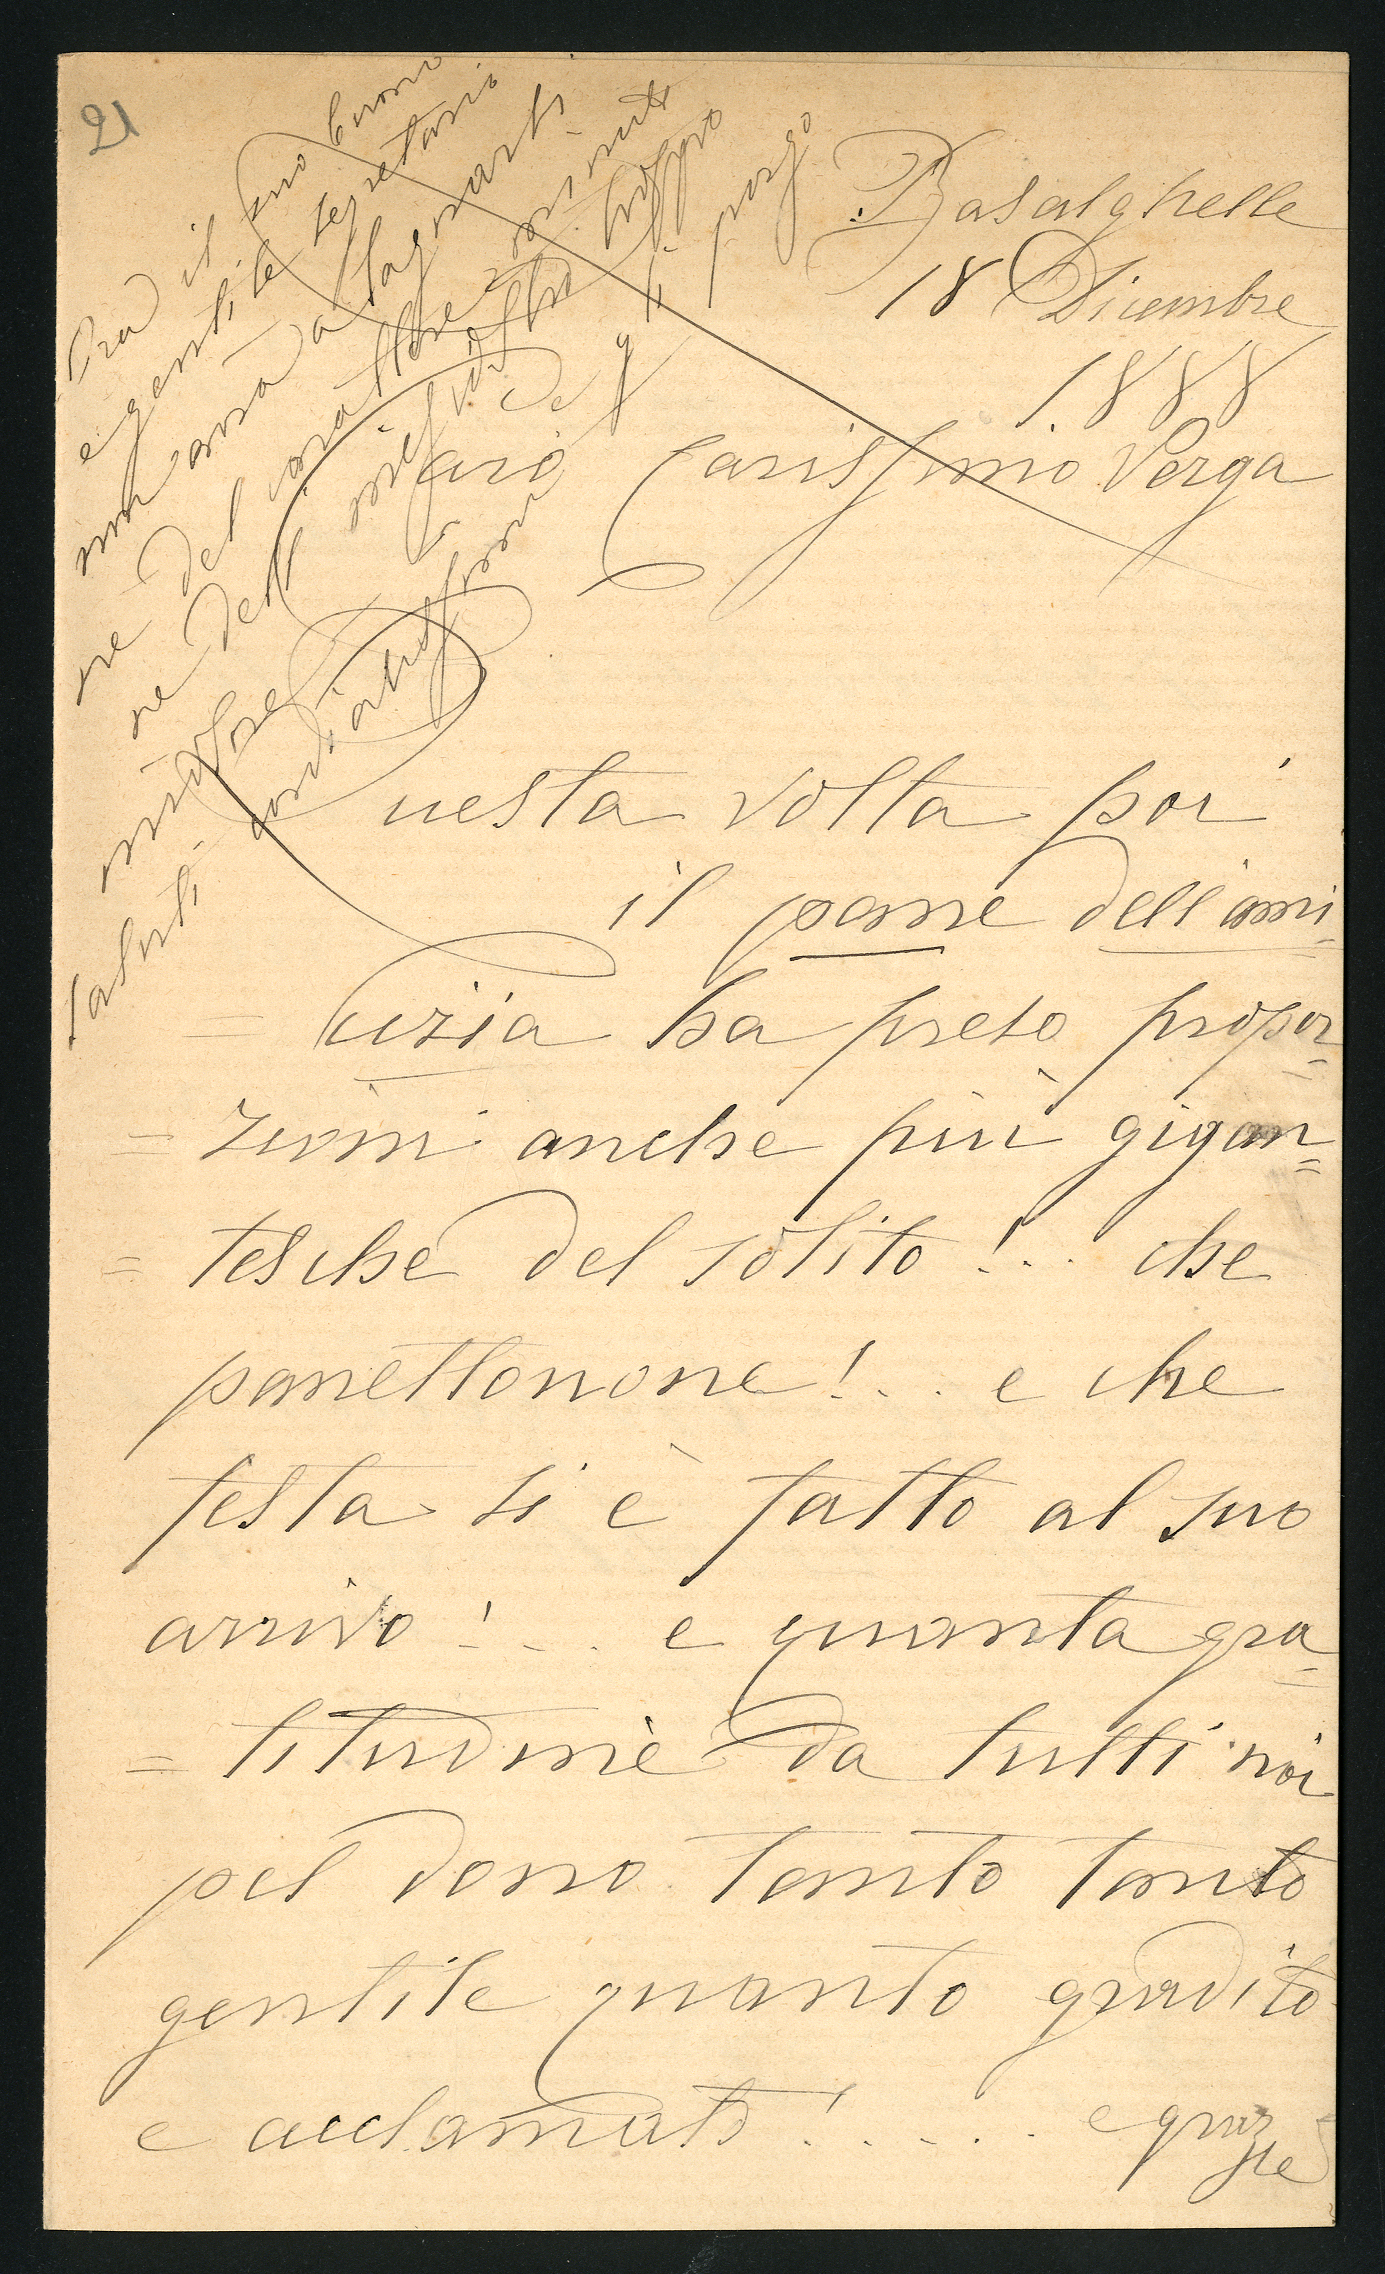 21
Basalghelle
18 Dicembre
1888
Caro Carissimo Verga
Questa volta poi
il pane dell'ami
= cizia ha preso propor=
= zioni anche più gigan=
= tesche del solito!.. che
panettonone!... e che
festa si è fatto al suo
arrivo!... e quanta gra=
= titudine da tutti noi
pel dono tanto tanto
gentile quanto gradito
e acclamato!..... e grazie
Ora il suo buono
e gentile segretario
non avrà a lagnarsi
ne del carattere minuto
ne dell' troppo
e gli porgo
saluti cordialissimi